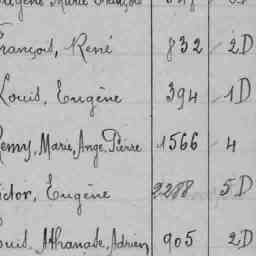 Eugène Marie François
François, René 832 2D
Louis, Eugène 394 1D
Remy, Marie, Ange, Pierre 1566 4
Victor, Eugène 2288 5D
Louis, Athanase, Adrien 905 2D